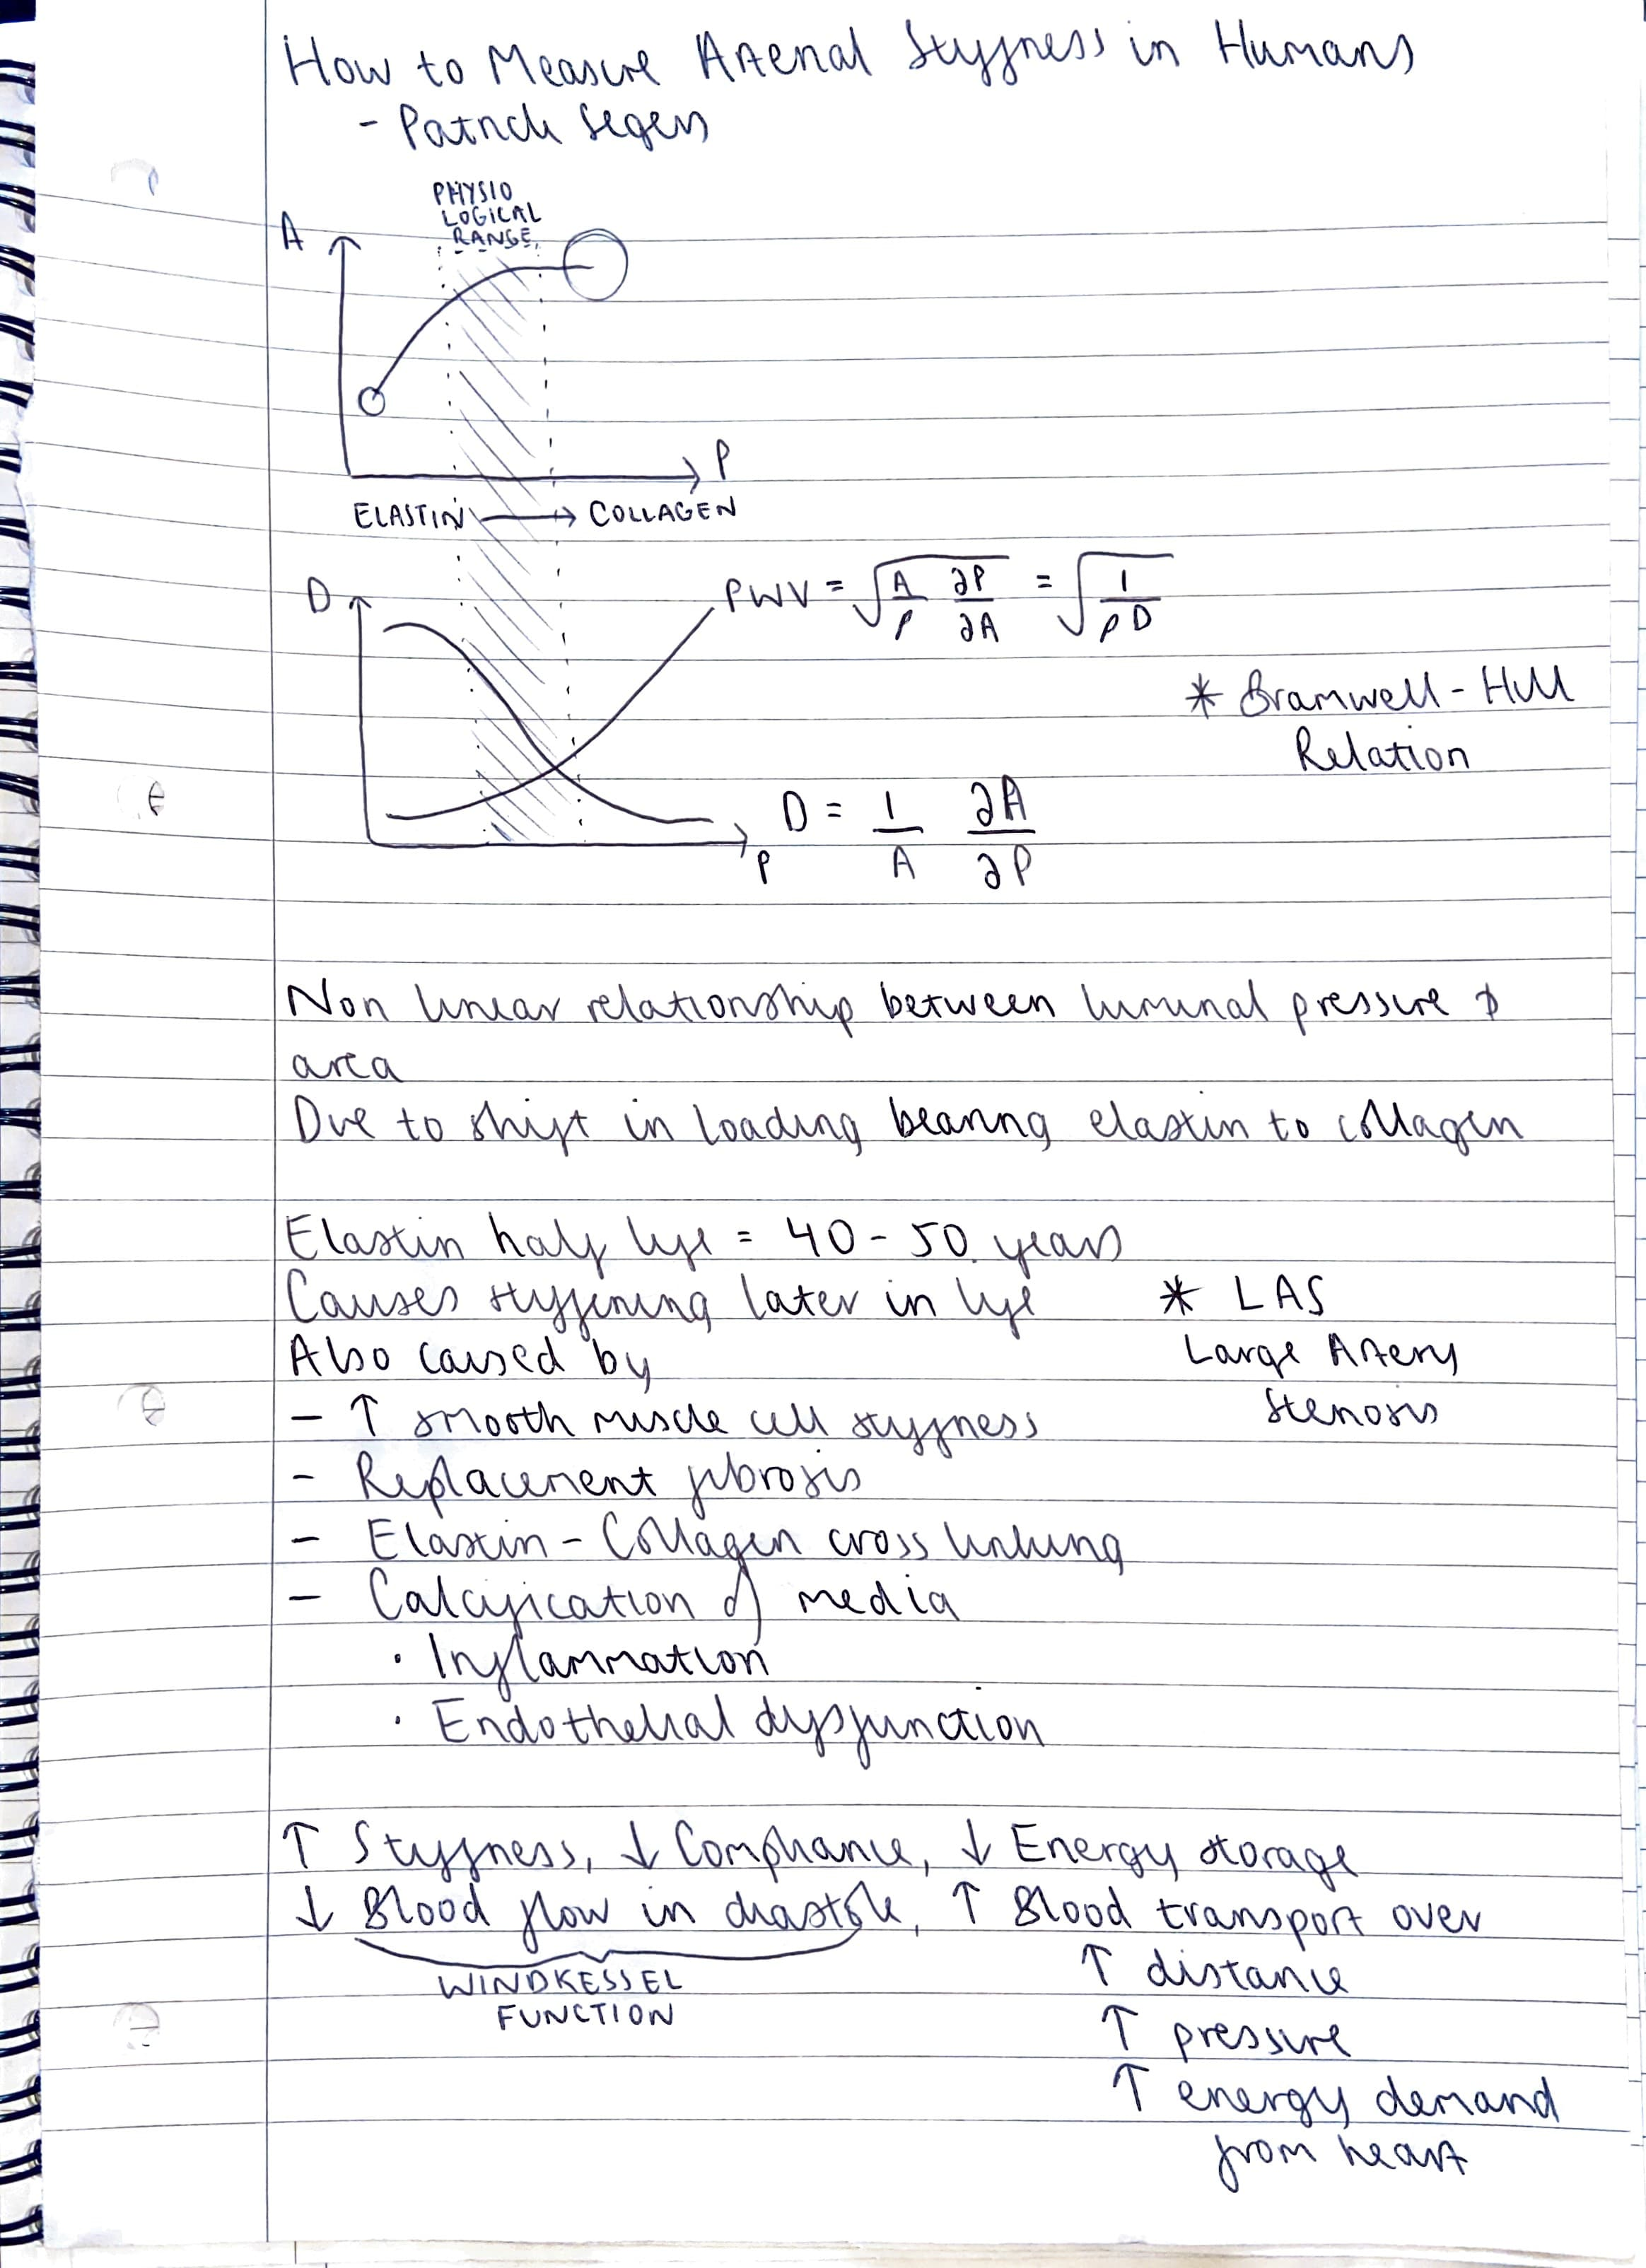 How to Measure Arterial Stiffness in Humans
- Patrick Segers
PHYSIO
LOGICAL
RANGE
A
P
ELASTIN → COLLAGEN
D
PWV = √(A/ρ ∂P/∂A) = √(1/ρD)
* Bramwell-Hill
Relation
D = 1/A ∂A/∂P
P
Non linear relationship between luminal pressure &
area
Due to shift in loading bearing elastin to collagen
Elastin half life = 40 - 50 years
Causes stiffening later in life
* LAS
Large Artery
Stenosis
Also caused by
- ↑ smooth muscle cell stiffness
- Replacement fibrosis
- Elastin - Collagen cross linking
- Calcification of media
· Inflammation
· Endothelial dysfunction
↑ Stiffness, ↓ Compliance, ↓ Energy storage
↓ Blood flow in diastole, ↑ Blood transport over
WINDKESSEL
FUNCTION
↑ distance
↑ pressure
↑ energy demand
from heart